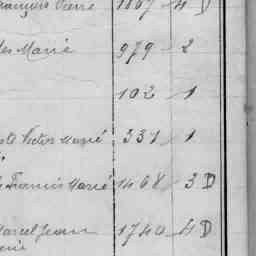 François Pierre 1867 4 D
des Marie 979 2
102 1
Victor Marie 331 1
Francis Marie 1468 3 D
Marcel Jean 1740 4 D